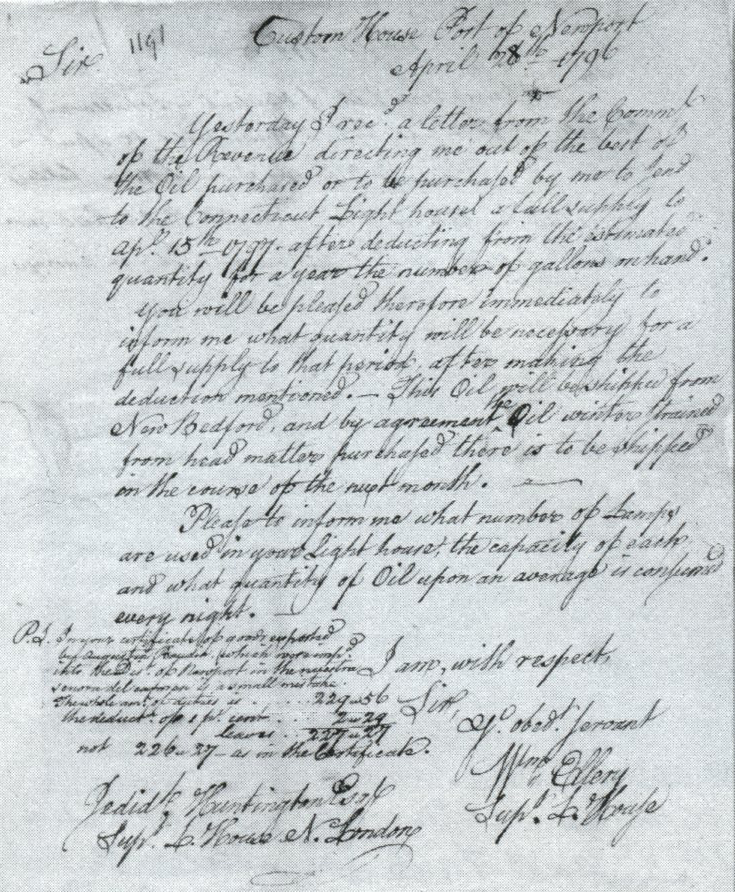 1191
Custom House Port of Newport
Sir
April 28th 1796
Yesterday I recd. a letter from the Commr.
of the Revenue directing me out of the best of
the Oil purchased or to be purchased by me to send
to the Connecticut Light houses a full supply to
apl. 15th 1797. after deducting from the estimated
quantity for a year the number of gallons on hand.
You will be pleased therefore immediately to
inform me what quantity will be necessary for a
full supply to that period, after making the
deduction mentioned. — This Oil will be shipped from
New Bedford, and by agreement the Oil winter strained
from head matter purchased there is to be shipped
in the course of the next month. —
Please to inform me what number of Lamps
are used in your Light house, the capacity of each
and what quantity of Oil upon an average is consumed
every night. —
P.S. In your certificate of goods exported
by which were impd.
into the Dist. of Newport in the nuestra
senora del is a small mistake.
The whole amt. of duties is .... 229.56
the deductn. of 1 pr. cent .... 2.29
leaves .. 227.27
not 226.27 — as in the Certificate.
I am, with respect,
Sir,
Yr. obedt. servant
Wm. Ellery
Supt. L. House
Jedidh. Huntington Esqr
Supt. L. House N. London